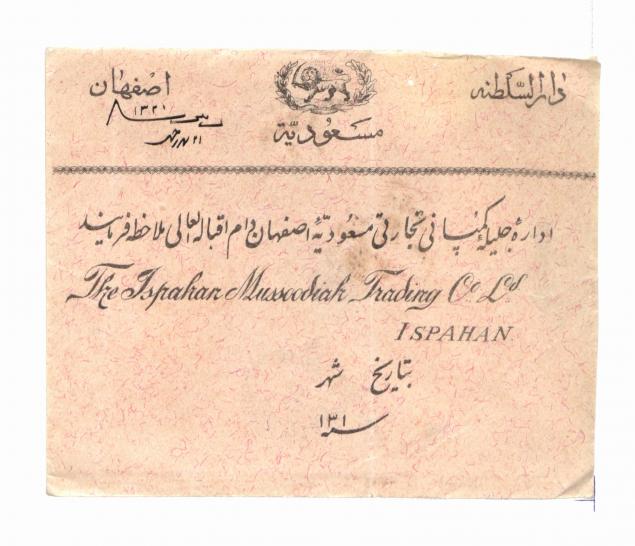 دارالسلطنه
اصفهان
مسعودیه
۱۳۲۱
۲۱
اداره جلیله کمپانی تجارتی مسعودیهٔ اصفهان دام اقباله العالی ملاحظه فرمایند
The Ispahan Mussoodiah Trading Co. Ld.
ISPAHAN
بتاریخ شهر
سنه ۱۳۱